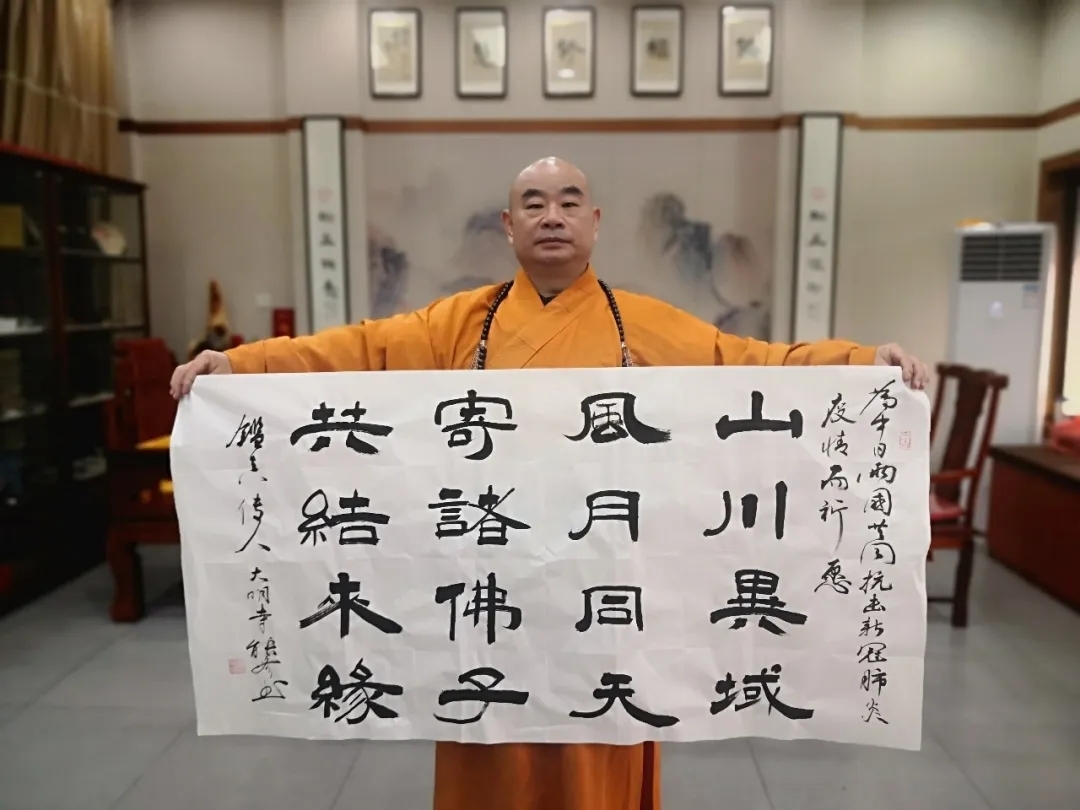 為中日兩國共同抗击新冠肺炎
疫情而祈愿
山川異域
風月同天
寄諸佛子
共結来緣
鑑真传人
大明寺能修书